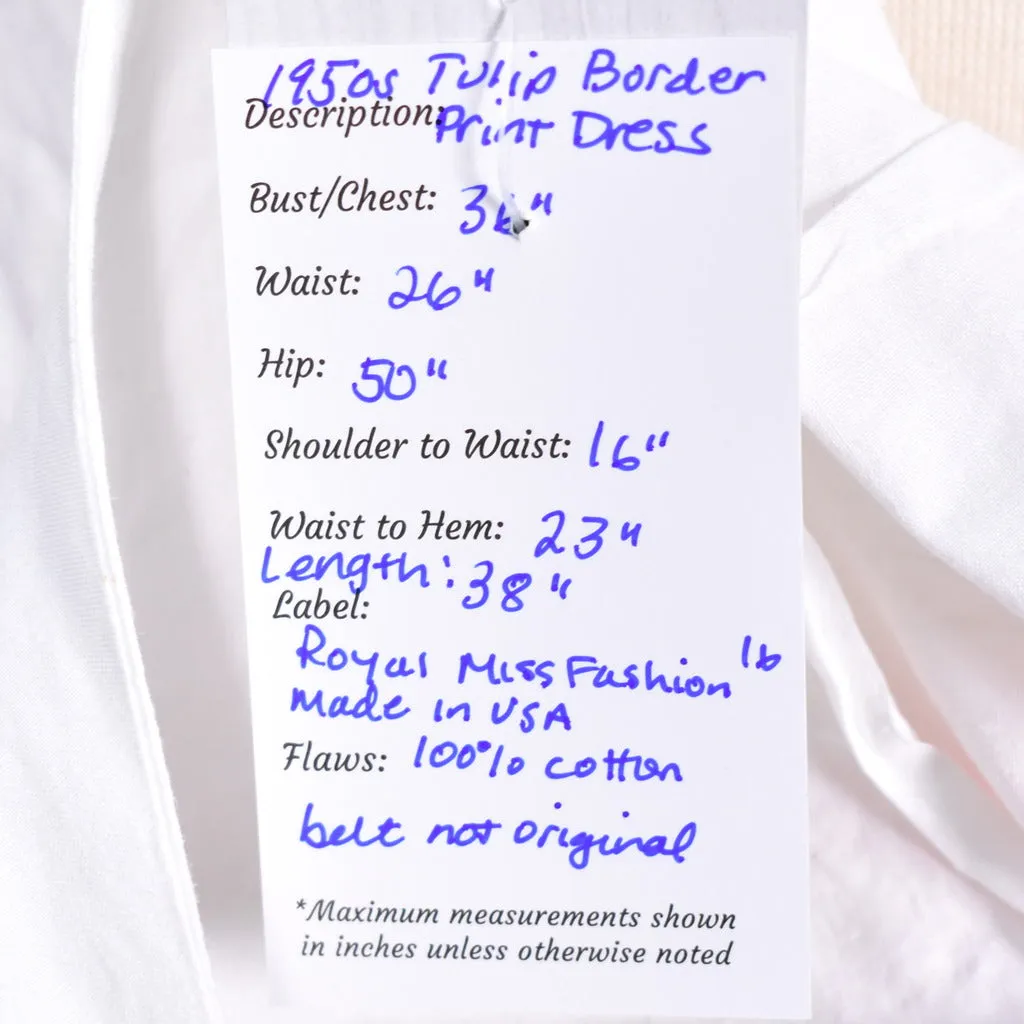 1950s Tulip Border
Description: Print Dress
Bust/Chest: 36"
Waist: 26"
Hip: 50"
Shoulder to Waist: 16"
Waist to Hem: 23"
Length: 38"
Label:
Royal Miss Fashion 16
made in USA
Flaws: 100% cotton
belt not original
*Maximum measurements shown
in inches unless otherwise noted